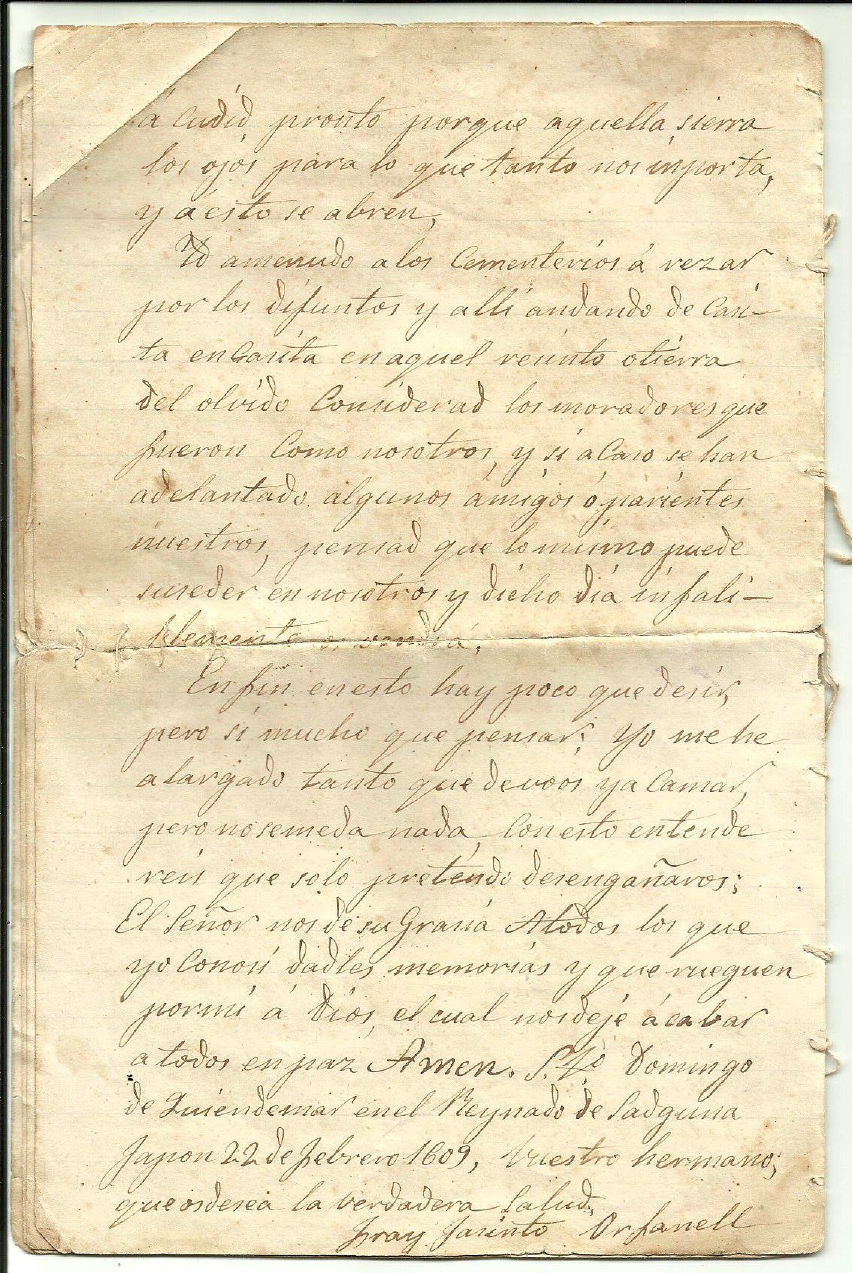 á Cudid pronto porque aquella sierra
los ojos para lo que tanto nos inporta,
y á esto se abren,
Yd amenudo a los Cementerios á rezar
por los difuntos y allí andando de Casi-
ta en Casita en aquel resinto o tierra
del olvido Considerad los moradores que
fueron Como nosotros, y si a Caso se han
adelantado algunos ámigos ó parientes
nuestros, pensad que lo mismo puede
suseder en nosotros y dicho dia infali-
blemente os vendrá.
En fin en esto hay poco que desir,
pero si mucho que pensar; Yo me he
alargado tanto que devoos ya Camar,
pero no se me da nada, Con esto entende
reis que solo pretendo desengañaros;
El Señor nos dé su Grasia Atodos los que
yo Conosi dadles memorias y que rueguen
por mi á Dios, el cual nos deje ácabar
a todos en paz Amen. S.to Domingo
de Quiendemar en el Reynado de Sadguna
Japon 22 de febrero 1609, Vuestro hermano,
que os desea la verdadera Salud,
fray Jasinto Orfanell